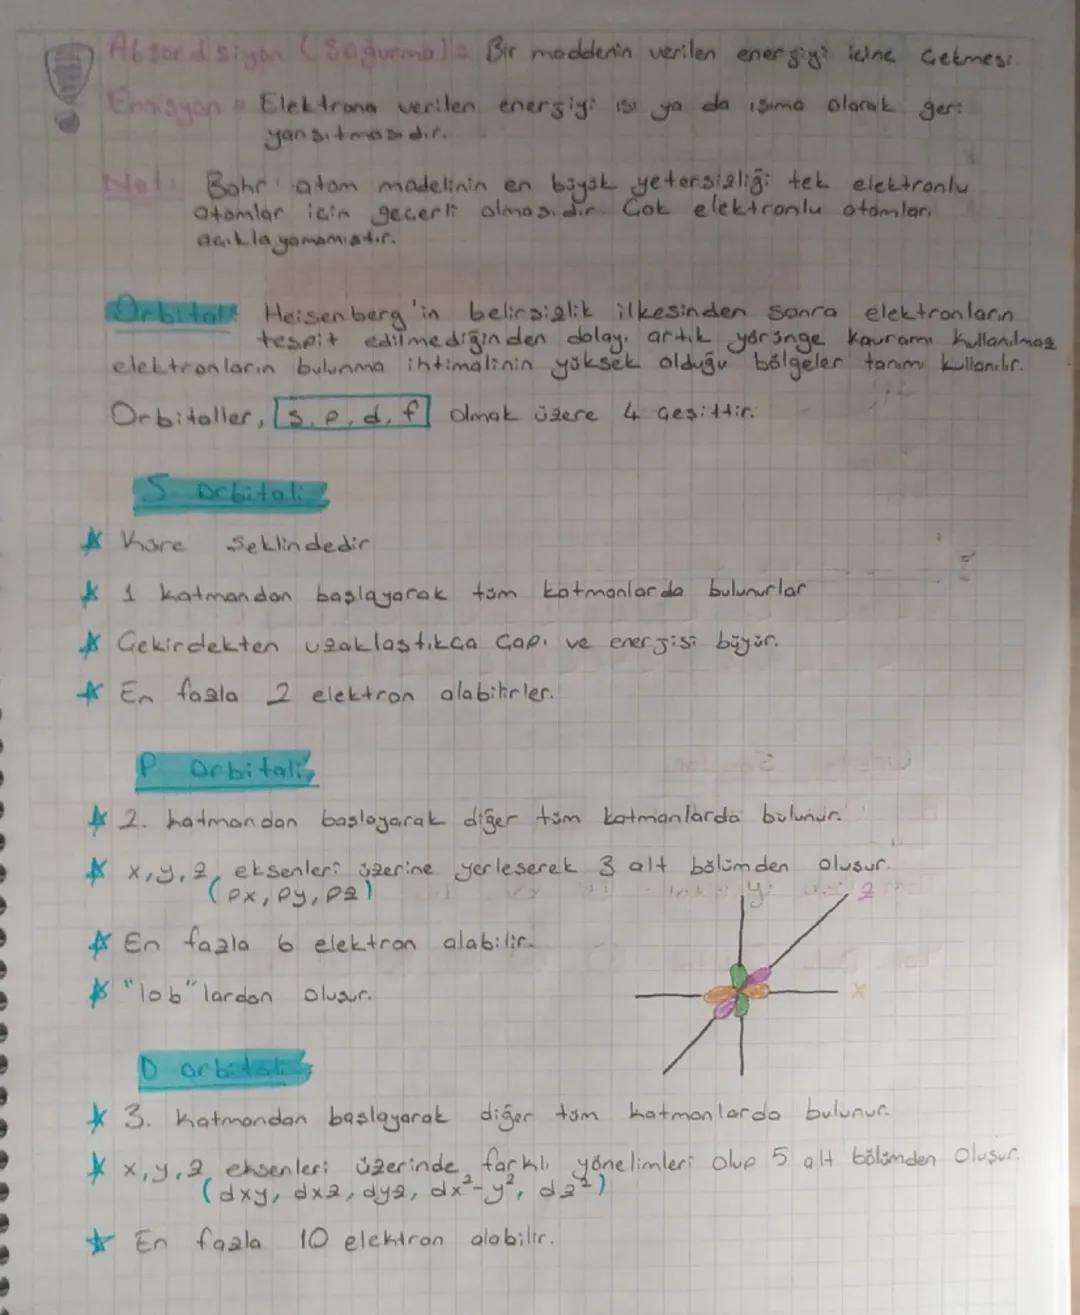 Absordsiyon (Soğurma) = Bir maddenin verilen enerjiyi içine çekmesi
Emisyon = Elektrona verilen enerjiyi ısı ya da ışıma olarak geri
yansıtmasıdır.
Not: Bohr atom modelinin en büyük yetersizliği tek elektronlu
atomlar için geçerli olmasıdır. Çok elektronlu atomları
açıklayamamıştır.
Orbital: Heisenberg'in belirsizlik ilkesinden sonra elektronların
tespit edilmediğinden dolayı artık yörünge kavramı kullanılmaz
elektronların bulunma ihtimalinin yüksek olduğu bölgeler tanımı kullanılır.
Orbitaller, s, p, d, f olmak üzere 4 çeşittir.
S orbitali
Küre şeklindedir
1 katmandan başlayarak tüm katmanlarda bulunurlar
Çekirdekten uzaklaştıkça çapı ve enerjisi büyür.
En fazla 2 elektron alabilirler.
P orbitali
2. katmandan başlayarak diğer tüm katmanlarda bulunur.
x, y, z, eksenleri üzerine yerleşerek 3 alt bölümden oluşur.
(px, py, pz)
y z
En fazla 6 elektron alabilir.
"lob"lardan oluşur.
x
D orbitali
3. katmandan başlayarak diğer tüm katmanlarda bulunur.
x, y, z eksenleri üzerinde farklı yönelimleri olup 5 alt bölümden oluşur.
(dxy, dxz, dyz, dx²-y², dz²)
En fazla 10 elektron alabilir.